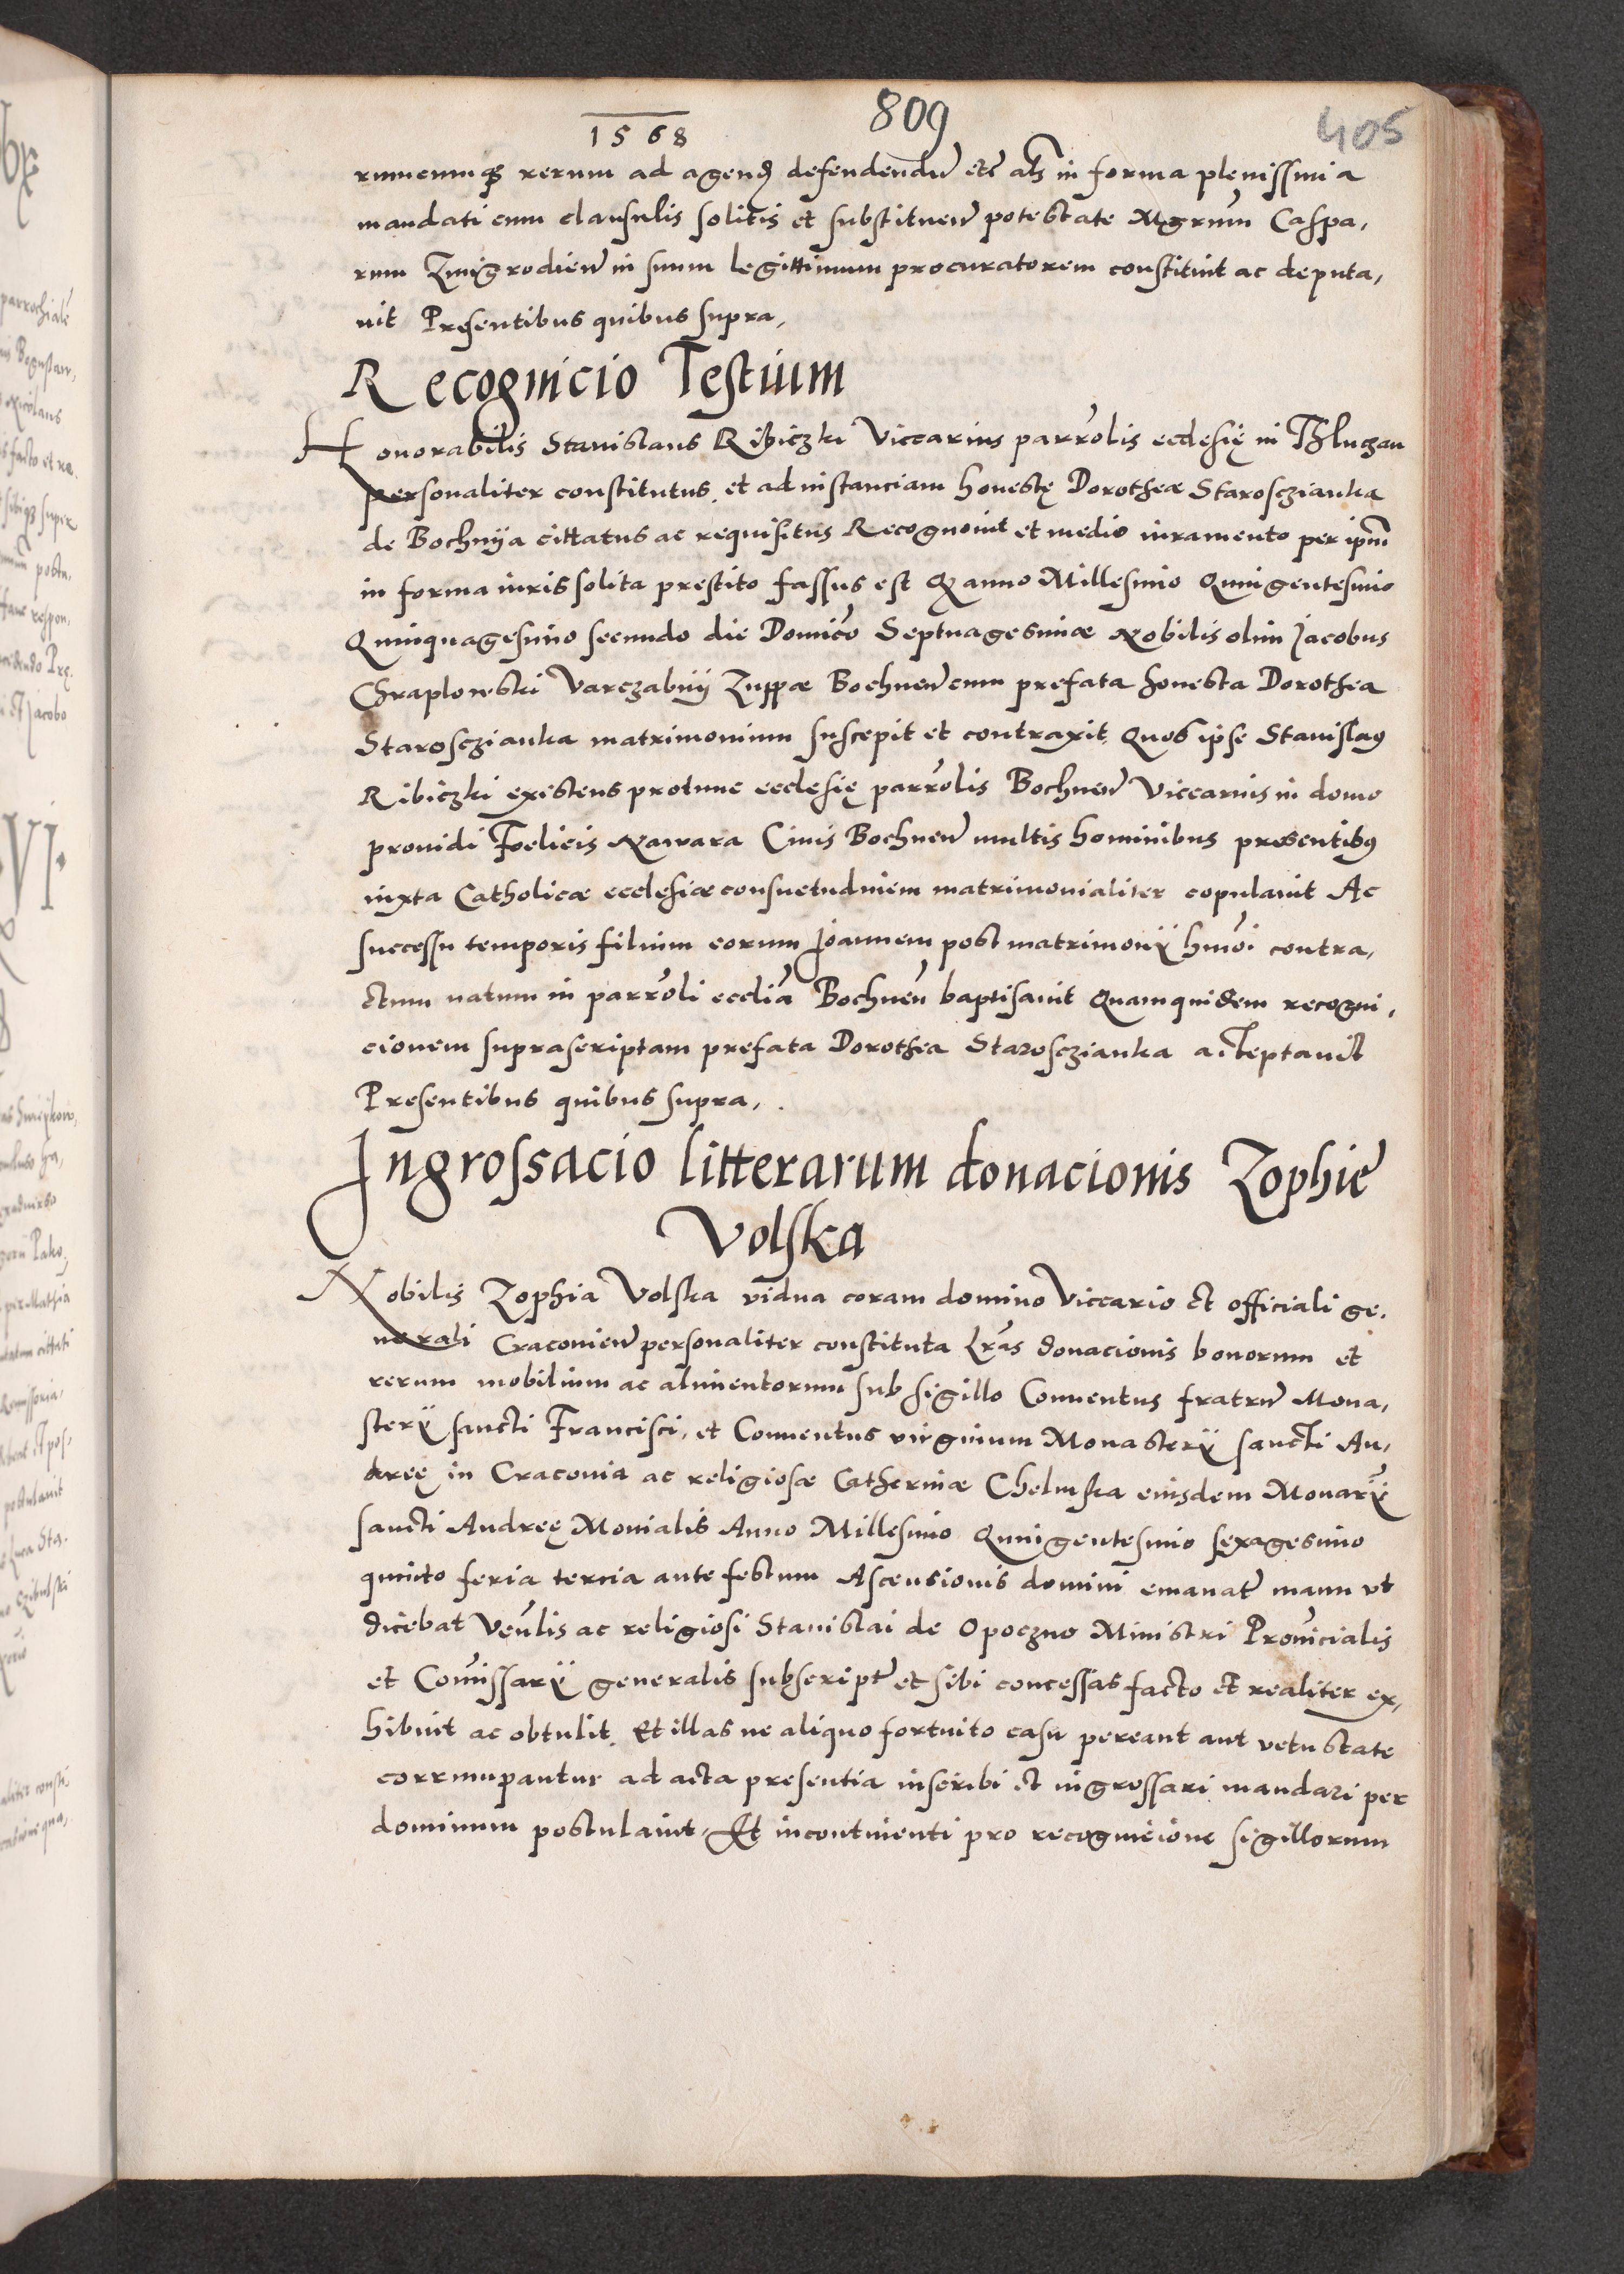 809
405
1568
rumcumqȝ rerum ad agend defendendū etc̄ als in forma plenissima
mandati cum clausulis solitis et substituen̄ potestate Mgrūm Caspa,
rum Zmigrodien̄ in suum legittimum procuratorem constituit ac deputa,
uit Presentibus quibus supra,
Recognicio Testium
Honorabilis Stanislaus Ribiczki Viccarius parrōlis ecclesię in
personaliter constitutus, et ad instanciam honestę Dorotheæ Starosczianka
de Bochnÿa cittatus ac requisitus Recognouit et medio iuramento per ipm̄
in forma iuris solita prestito fassus est Qz anno Millesimo Quingentesimo
Quinquagesimo secundo die Domico᷑ Septuagesimæ Nobilis olim Jacobus
Chraplowski Varczabnÿ Zuppæ Bochnen̄ cum prefata honesta Dorothea
Starosczianka matrimonium suscepit et contraxit, Quos ipse Stanislaꝯ
Ribiczki existens protunc ecclesię parrōlis Bochnen̄ Viccarius in domo
prouidi Foelicis Nawara Ciuis Bochnen̄ multis hominibus presentibꝯ
iuxta Catholicæ ecclesiæ consuetudinem matrimonialiter copulauit Ac
successu temporis filium eorum Joannem post matrimoniÿ hmōi contra,
ctum natum in parrōli ecclīa Bochnen̄ baptisauit Quamquidem recogni,
cionem suprascriptam prefata Dorothea Starosczianka acceptauit
Presentibus quibus supra,.
Ingrossacio litterarum donacionis Zophie
Volska
Nobilis Zophia Volska vidua coram domino Viccario et officiali ge.
nerali Cracouien̄ personaliter constituta lrās donacionis bonorum et
rerum mobilium ac alimentorum sub sigillo Conuentus fratrū Mona,
sterÿ sancti Francisci, et Conuentus virginum Monasterÿ sancti An,
dreę in Cracouia ac religiosæ Catherinæ Chelmska eiusdem Monarÿ̄
sancti Andreę Monialis Anno Millesimo Quingentesimo sexagesimo
quinto feria tercia ante festum Ascensionis domini emanat᷑ manu vt
dicebat Venlīs ac religiosi Stanislai de Opoczno Ministri Prouīcialis
et Comīssarÿ generalis subscript᷑ et sibi concessas facto et realiter ex,
hibuit ac obtulit, Et illas ne aliquo fortuito casu pereant aut vetustate
corrumpantur ad acta presentia inscribi et ingrossari mandari per
dominum postulauit, Et incontinenti pro recognicione sigillorum